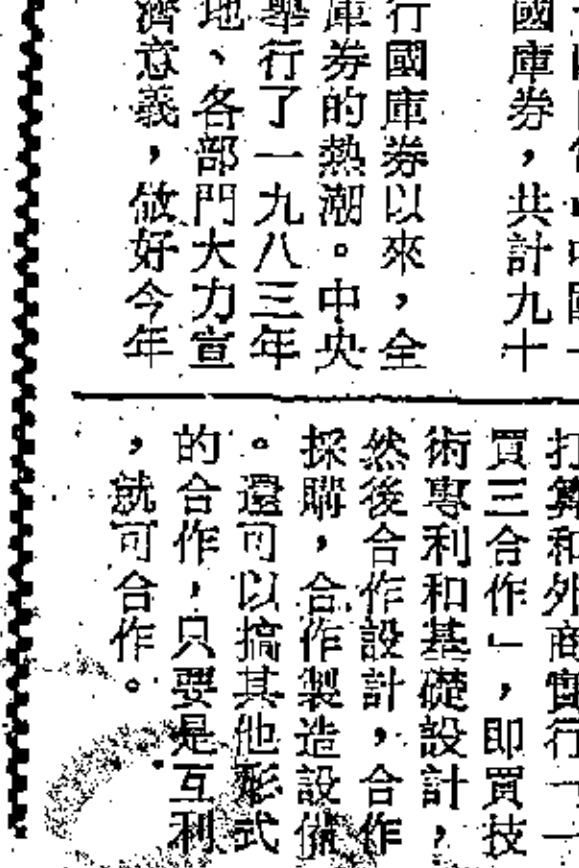 國庫券，共計九十
行國庫券以來，全
庫券的熱潮。中央
舉行了一九八三年
地、各部門大力宣
濟意義，做好今年
打算和外商實行「一
買三合作」，即買技
術專利和基礎設計，
然後合作設計，合作
採購，合作製造設備
。還可以搞其他形式
的合作，只要是互利
，就可合作。